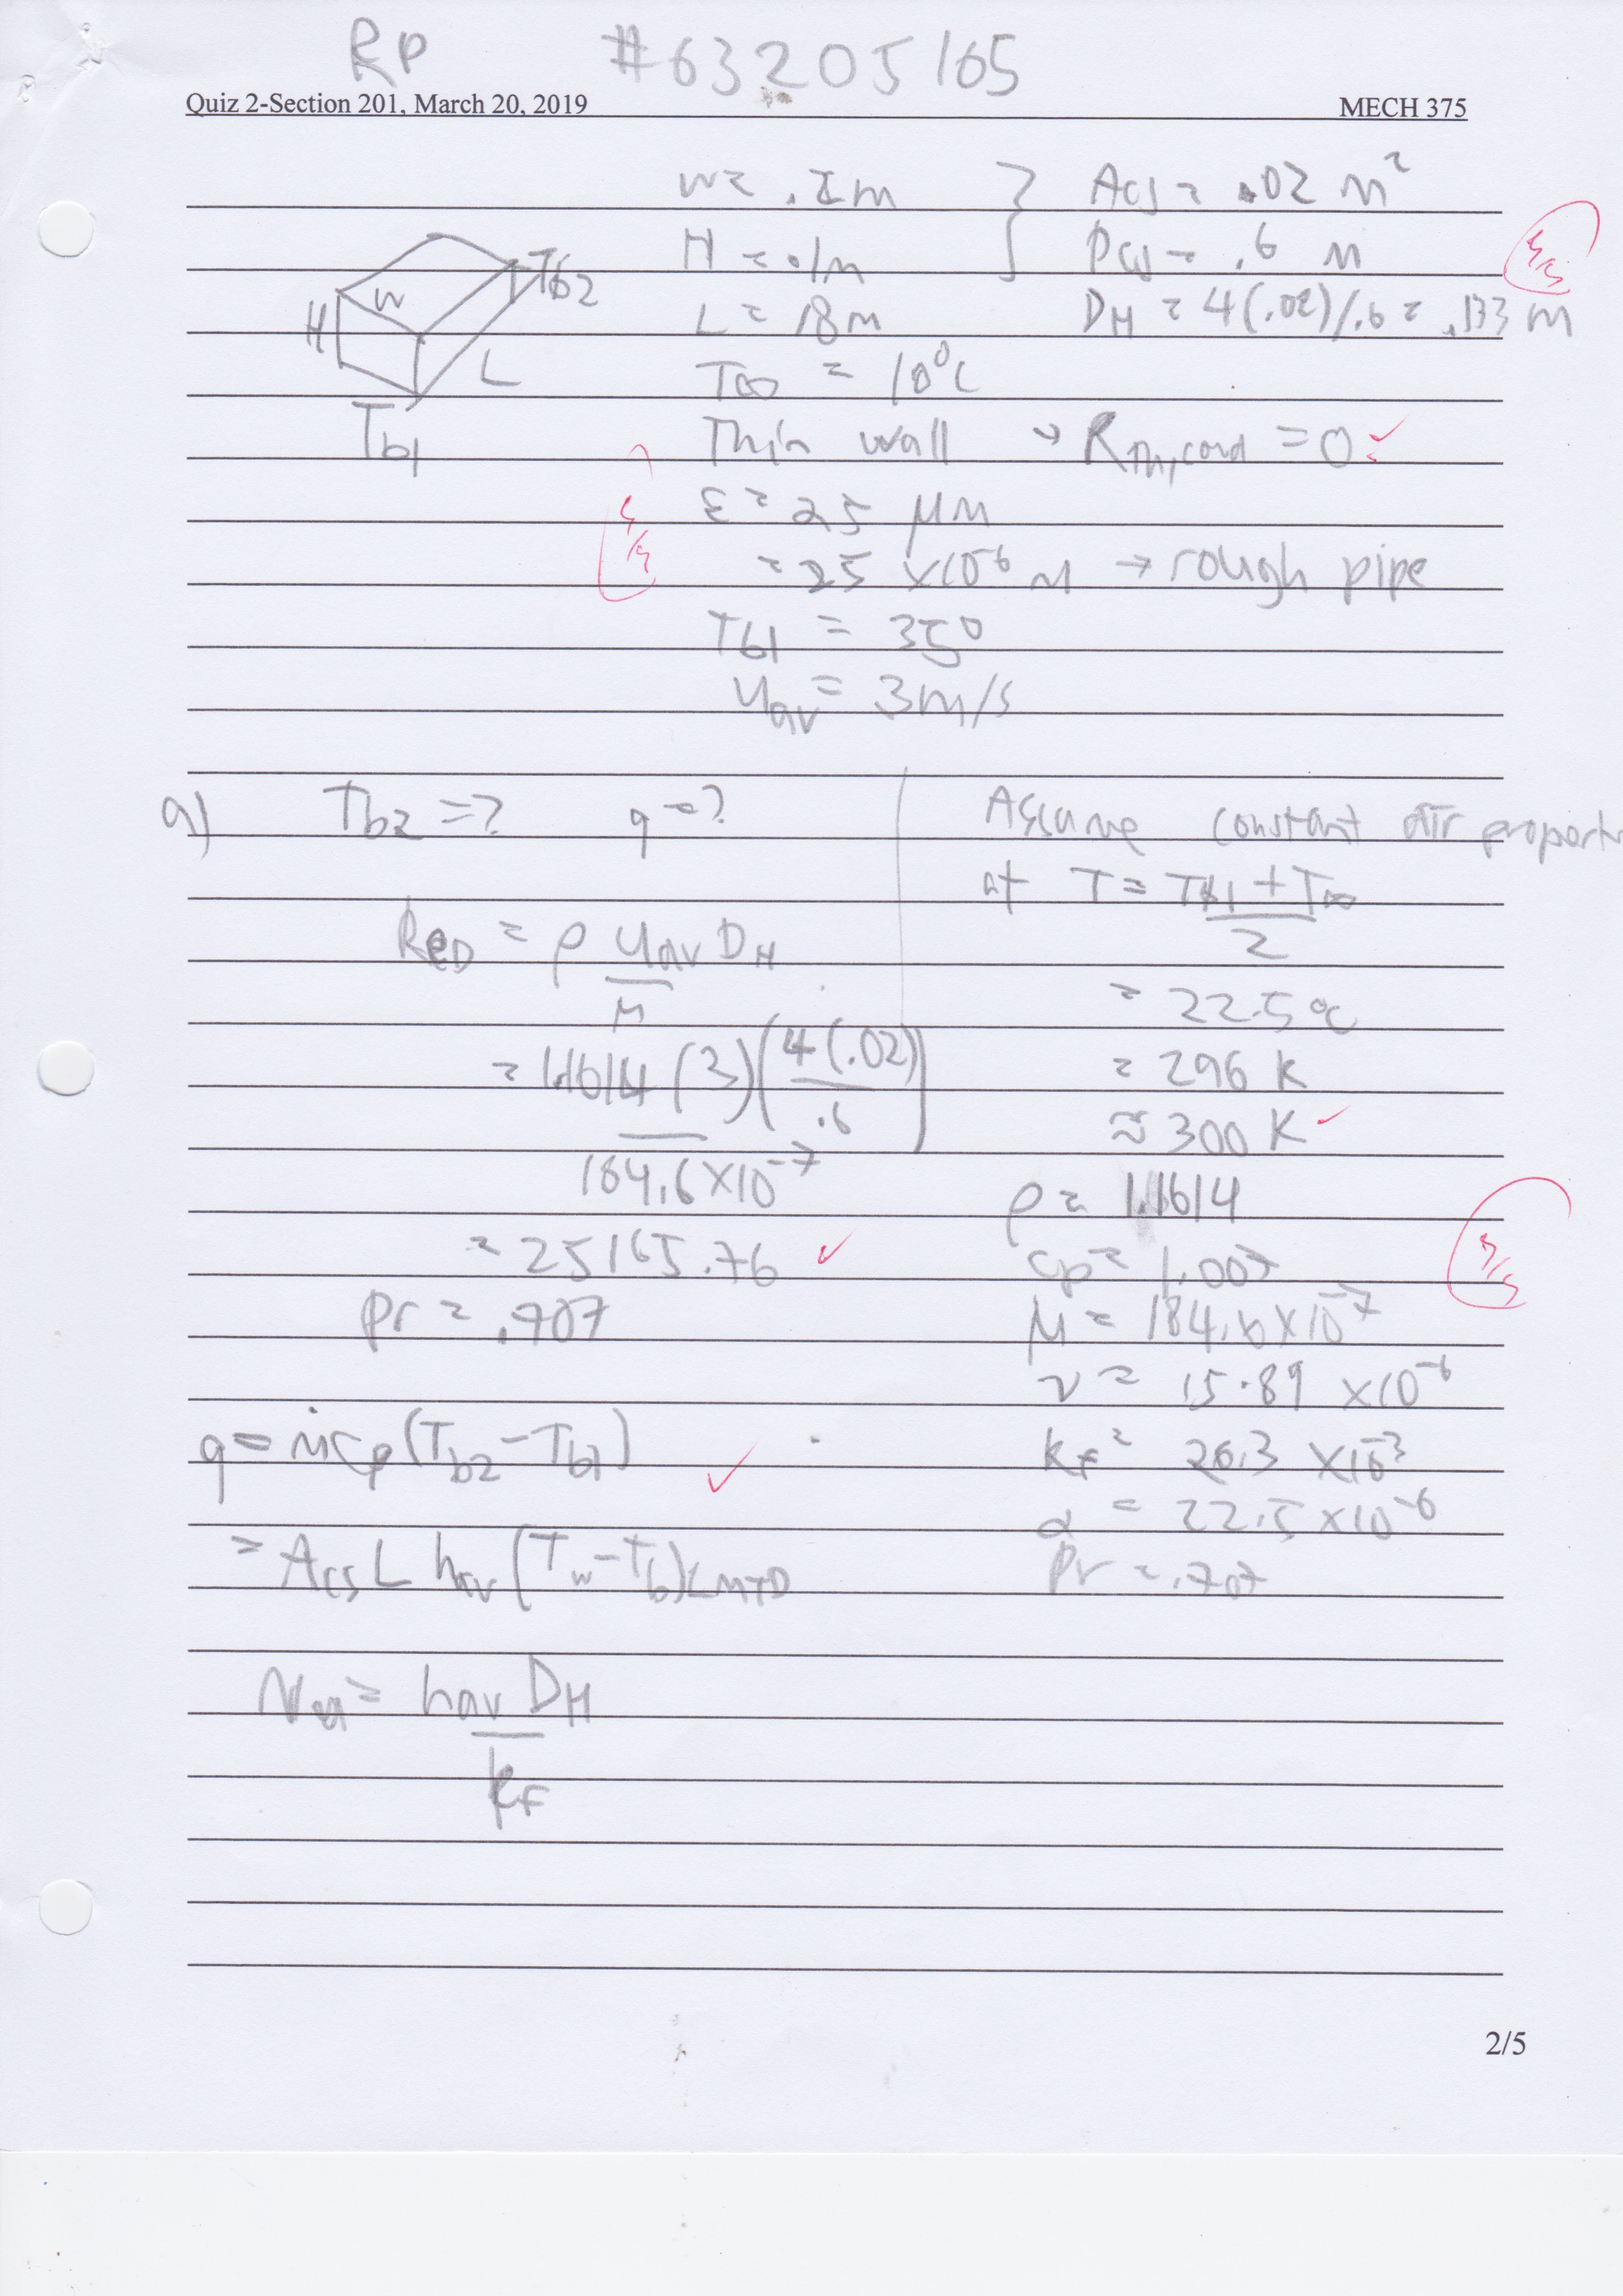 RP #63205165
Quiz 2-Section 201, March 20, 2019 MECH 375
w = .2m } Acs = .02 m²
H = .1m Pcs = .6 m
L = 18m DH = 4(.02)/.6 = .133 m
H w Tb2 L Tb1
T∞ = 10°C
Thin wall → Rth,cond = 0
ε = 25 μm
= 25 ×10⁻⁶ m → rough pipe
Tb1 = 35°
Uav = 3m/s
5/5
5/5
a) Tb2 = ? q = ?
ReD = ρ Uav DH / μ
= 1.1614 (3)(4(.02)/.6) / 184.6×10⁻⁷
= 25165.76
Pr = .707
q = ṁcp(Tb2 - Tb1)
= Acs L hav (Tw - Tb)LMTD
= hav DH / kF
Assume constant air propert
at T = Tb1 + T∞ / 2
= 22.5°C
= 296 K
≈ 300 K
ρ = 1.1614
cp = 1.007
μ = 184.6×10⁻⁷
ν = 15.89 ×10⁻⁶
kF = 26.3 ×10⁻³
α = 22.5×10⁻⁶
Pr = .707
5/5
2/5